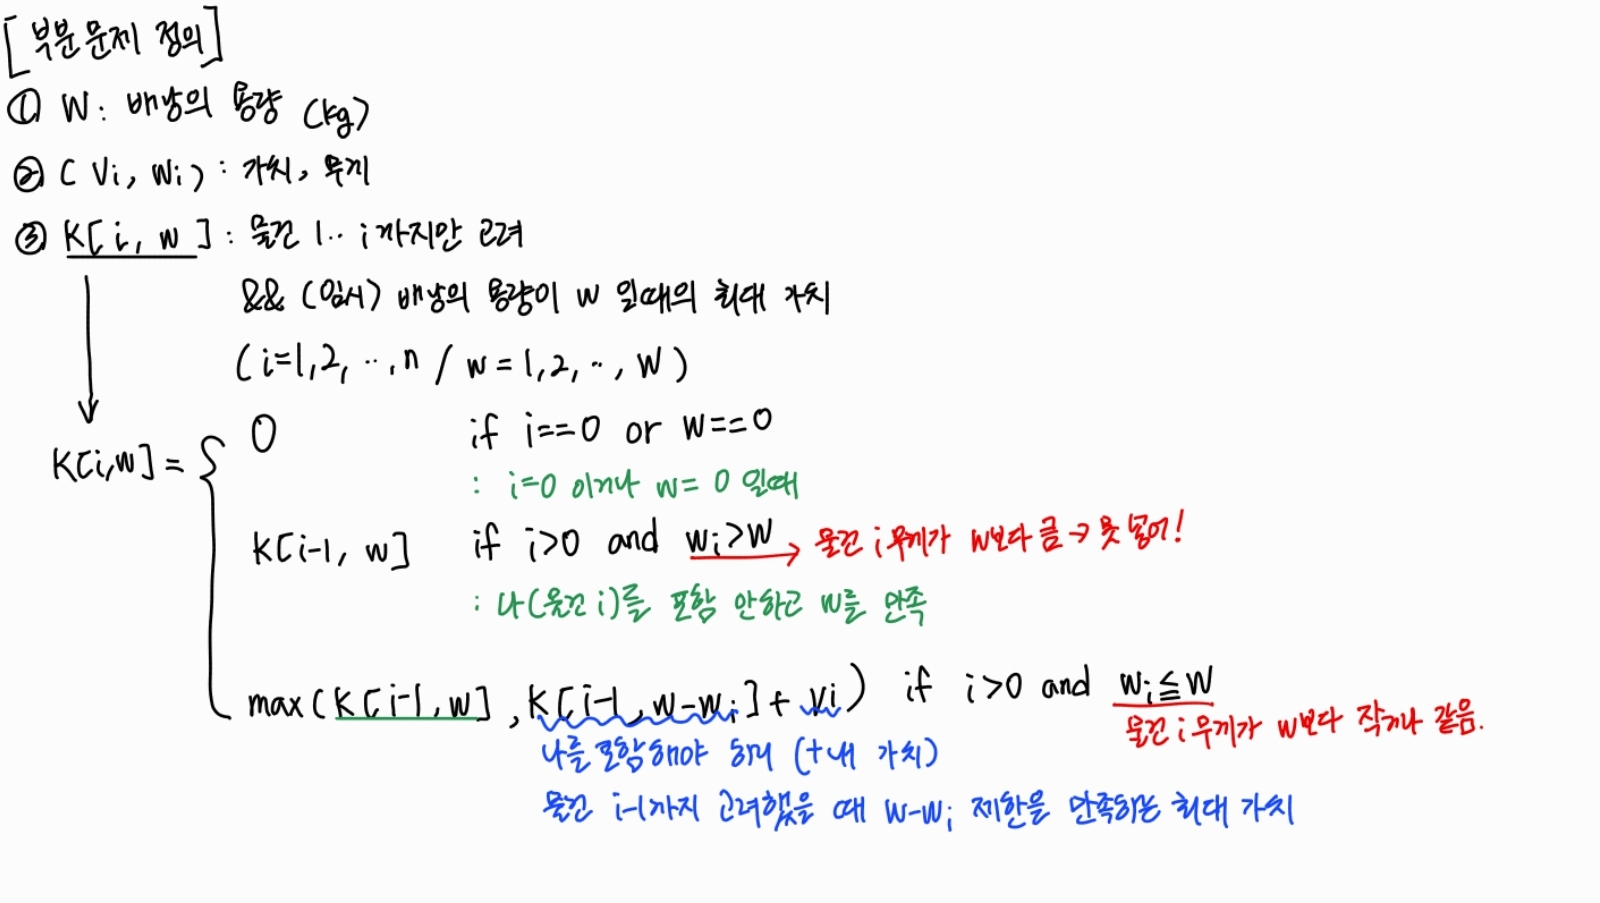 [부분문제 정의]
① W: 배낭의 용량 (kg)
② (Vi, Wi) : 가치, 무게
③ K[i, w] : 물건 1‥i까지만 고려
&& (임시) 배낭의 용량이 w 일때의 최대 가치
(i=1,2, ‥,n / w=1,2,‥, W)
0 if i==0 or w==0
: i=0 이거나 w=0 일때
K[i,w] = {
K[i-1, w] if i>0 and wi>w → 물건 i 무게가 w보다 큼→못 넣어!
: 나(물건 i)를 포함 안하고 w를 만족
max(K[i-1, w], K[i-1, w-wi]+vi) if i>0 and wi≦w
물건 i 무게가 w보다 작거나 같음.
나를 포함해야 하니 (+내 가치)
물건 i-1까지 고려했을 때 w-wi 제한을 만족하는 최대 가치